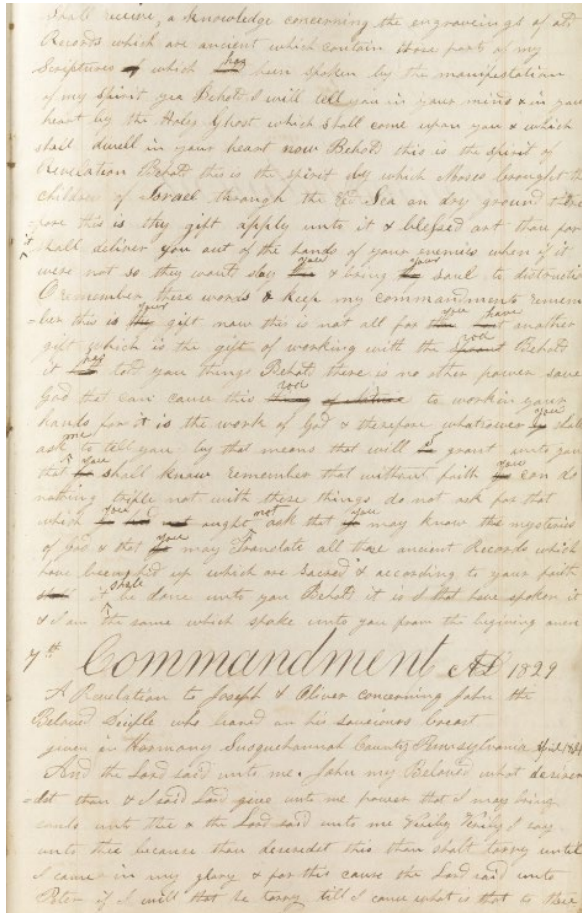 shall receive, a knowledge concerning the engraveings of old
Records which are ancient which contain those parts of my
Scriptures of which hav been spoken by the manifestation
of my Spirit yea Behold I will tell you in your mind & in your
heart by the Holy Ghost which shall come upon you & which
shall dwell in your heart now Behold this is the spirit of
Revelation Behold this is the spirit by which Moses brought the
children of Israel through the red Sea on dry ground there
=fore this is thy gift apply unto it & blessed art thou for
it shall deliver you out of the hands of your enemies when if it
were not so they would slay you & bring your soul to distructio
O remember these words & keep my commandments remem
=ber this is your gift now this is not all for you have another
gift which is the gift of working with the rod Behold
it has told you things Behold there is no other power save
God that can cause this rod to work in your
hands for it is the work of God & therefore whatsoever you shall
ask me to tell you by that means that will I grant unto you
that you shall know remember that without faith you can do
nothing trifle not with these things do not ask for that
which you ought not ask that you may know the mysteries
of God & that you may Translate all those ancient Records which
have been hid up which are sacred & according to your faith
shall it be done unto you Behold it is I that have spoken it
& I am the same which spake unto you from the begining amen
7th Commandment AD 1829
A Revelation to Joseph & Oliver concerning John the
Beloved Deciple who leaned on his saviours breast
given in Harmony Susquehannah County Pennsylvania April 1829
And the Lord said unto me. John my Beloved what desires
=dst thou & I said Lord give unto me power that I may bring
souls unto thee & the Lord said unto me Verily Verily I say
unto thee because thou deseredst this thou shalt tarry until
I come in my glory & for this cause the Lord said unto
Peter if I will that he tarry till I come what is that to thee